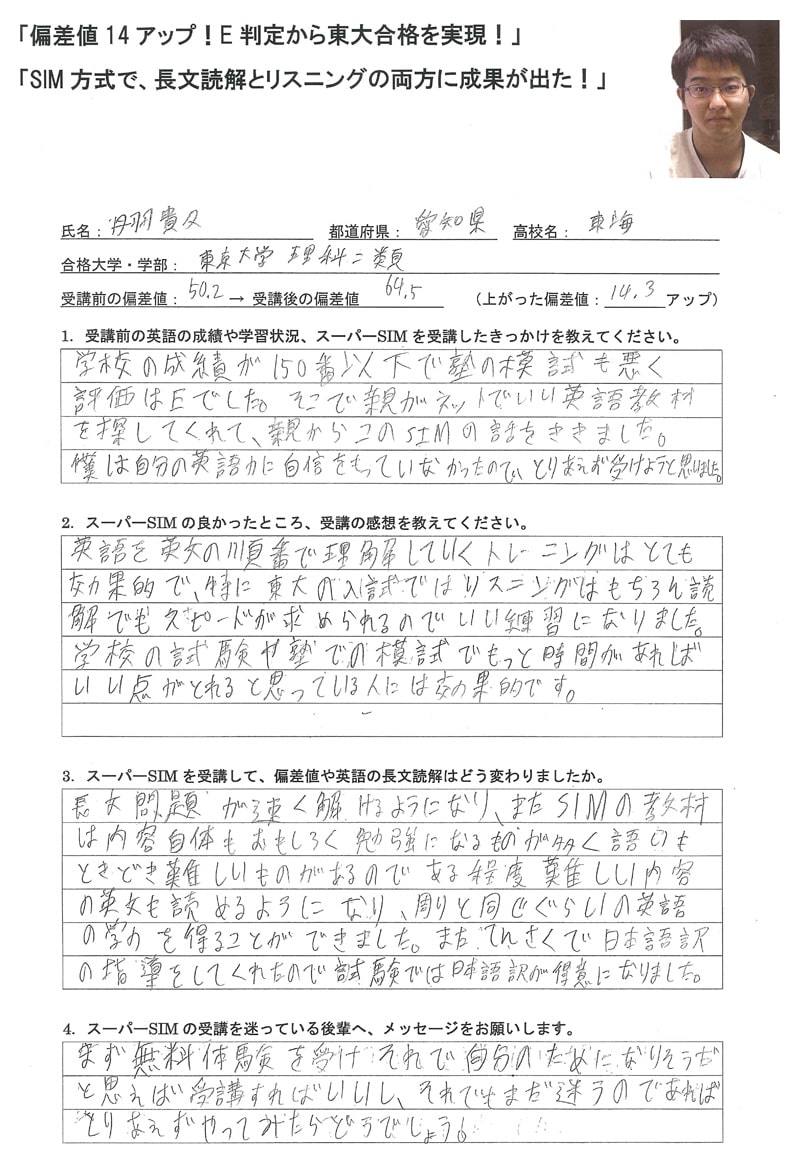 「偏差値14アップ！E判定から東大合格を実現！」
「SIM方式で、長文読解とリスニングの両方に成果が出た！」
氏名：丹羽貴久 都道府県：愛知県 高校名：東海
合格大学・学部：東京大学 理科二類
受講前の偏差値：50.2→受講後の偏差値 64.5 （上がった偏差値：14.3アップ）
1. 受講前の英語の成績や学習状況、スーパーSIMを受講したきっかけを教えてください。
学校の成績が150番以下で塾の模試も悪く
評価はEでした。そこで親がネットでいい英語教材
を探してくれて、親からこのSIMの話をききました。
僕は自分の英語力に自信をもっていなかったので、とりあえず受けようと思いました。
2. スーパーSIMの良かったところ、受講の感想を教えてください。
英語を英文の順番で理解していくトレーニングはとても
効果的で、特に東大の入試ではリスニングはもちろん読
解でもスピードが求められるのでいい練習になりました。
学校の試験や塾での模試でもっと時間があれば
いい点がとれると思っている人には効果的です。
3. スーパーSIMを受講して、偏差値や英語の長文読解はどう変わりましたか。
長文問題が速く解けるようになり、またSIMの教材
は内容自体もおもしろく勉強になるものが多く語句も
ときどき難しいものがあるのである程度難しい内容
の英文も読めるようになり、周りと同じぐらいの英語
の学力を得ることができました。またてんさくで日本語訳
の指導をしてくれたので試験では日本語訳が得意になりました。
4. スーパーSIMの受講を迷っている後輩へ、メッセージをお願いします。
まず無料体験を受けそれで自分のためになりそうだ
と思えば受講すればいいし、それでもまだ迷うのであれば
とりあえずやってみたらどうでしょう。